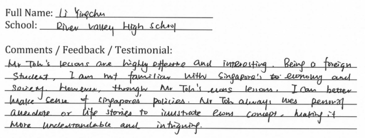 Full Name: Li Yingchu
School: River Valley High School
Comments / Feedback / Testimonial:
Mr Toh's lessons are highly effective and interesting. Being a foreign
student, I am not familiar with Singapore's economy and
society. However, through Mr Toh's econs lessons, I can better
make sense of Singapore's policies. Mr Toh always uses personal
anecdote or life stories to illustrate econs concept, making it
more understandable and intriguing.